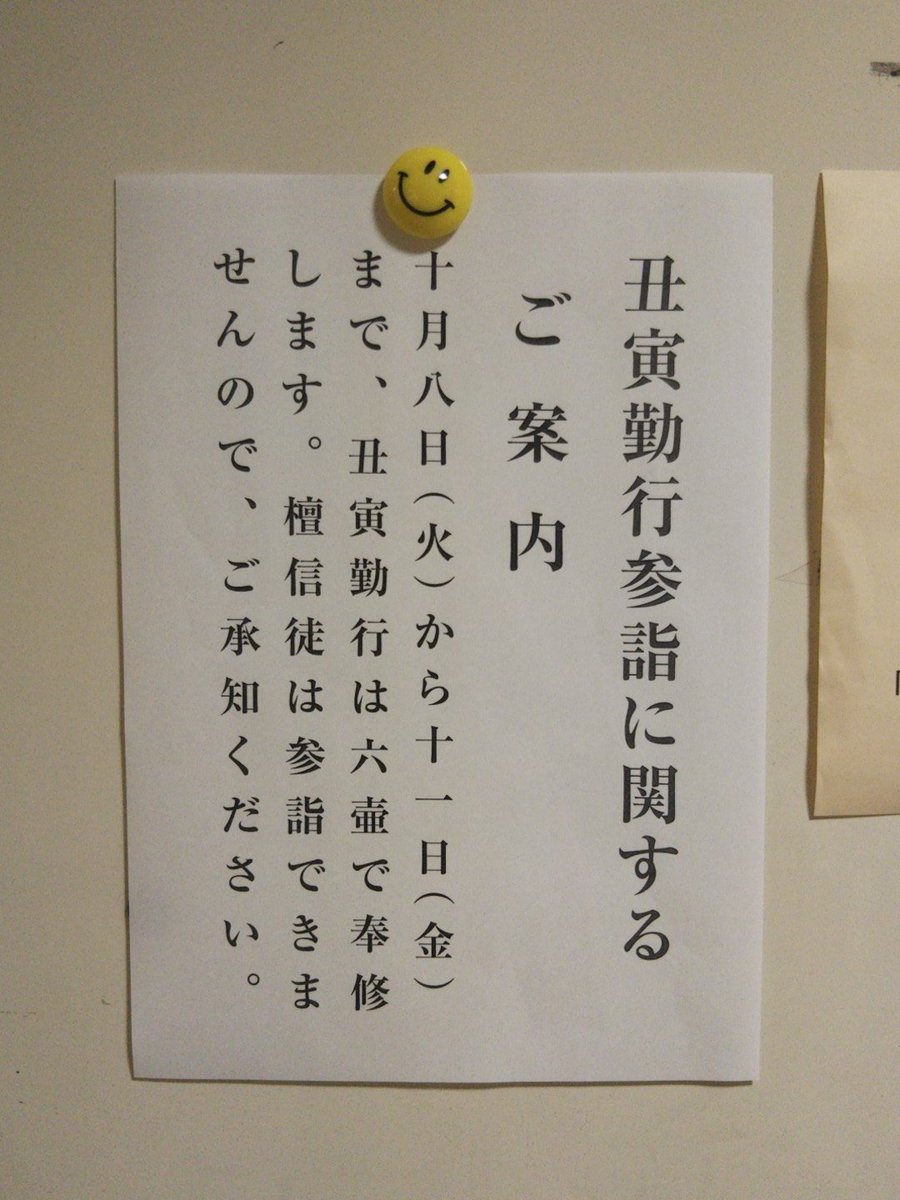 丑寅勤行参詣に関する
ご案内
十月八日(火)から十一日(金)
まで、丑寅勤行は六壷で奉修
します。檀信徒は参詣できま
せんので、ご承知ください。